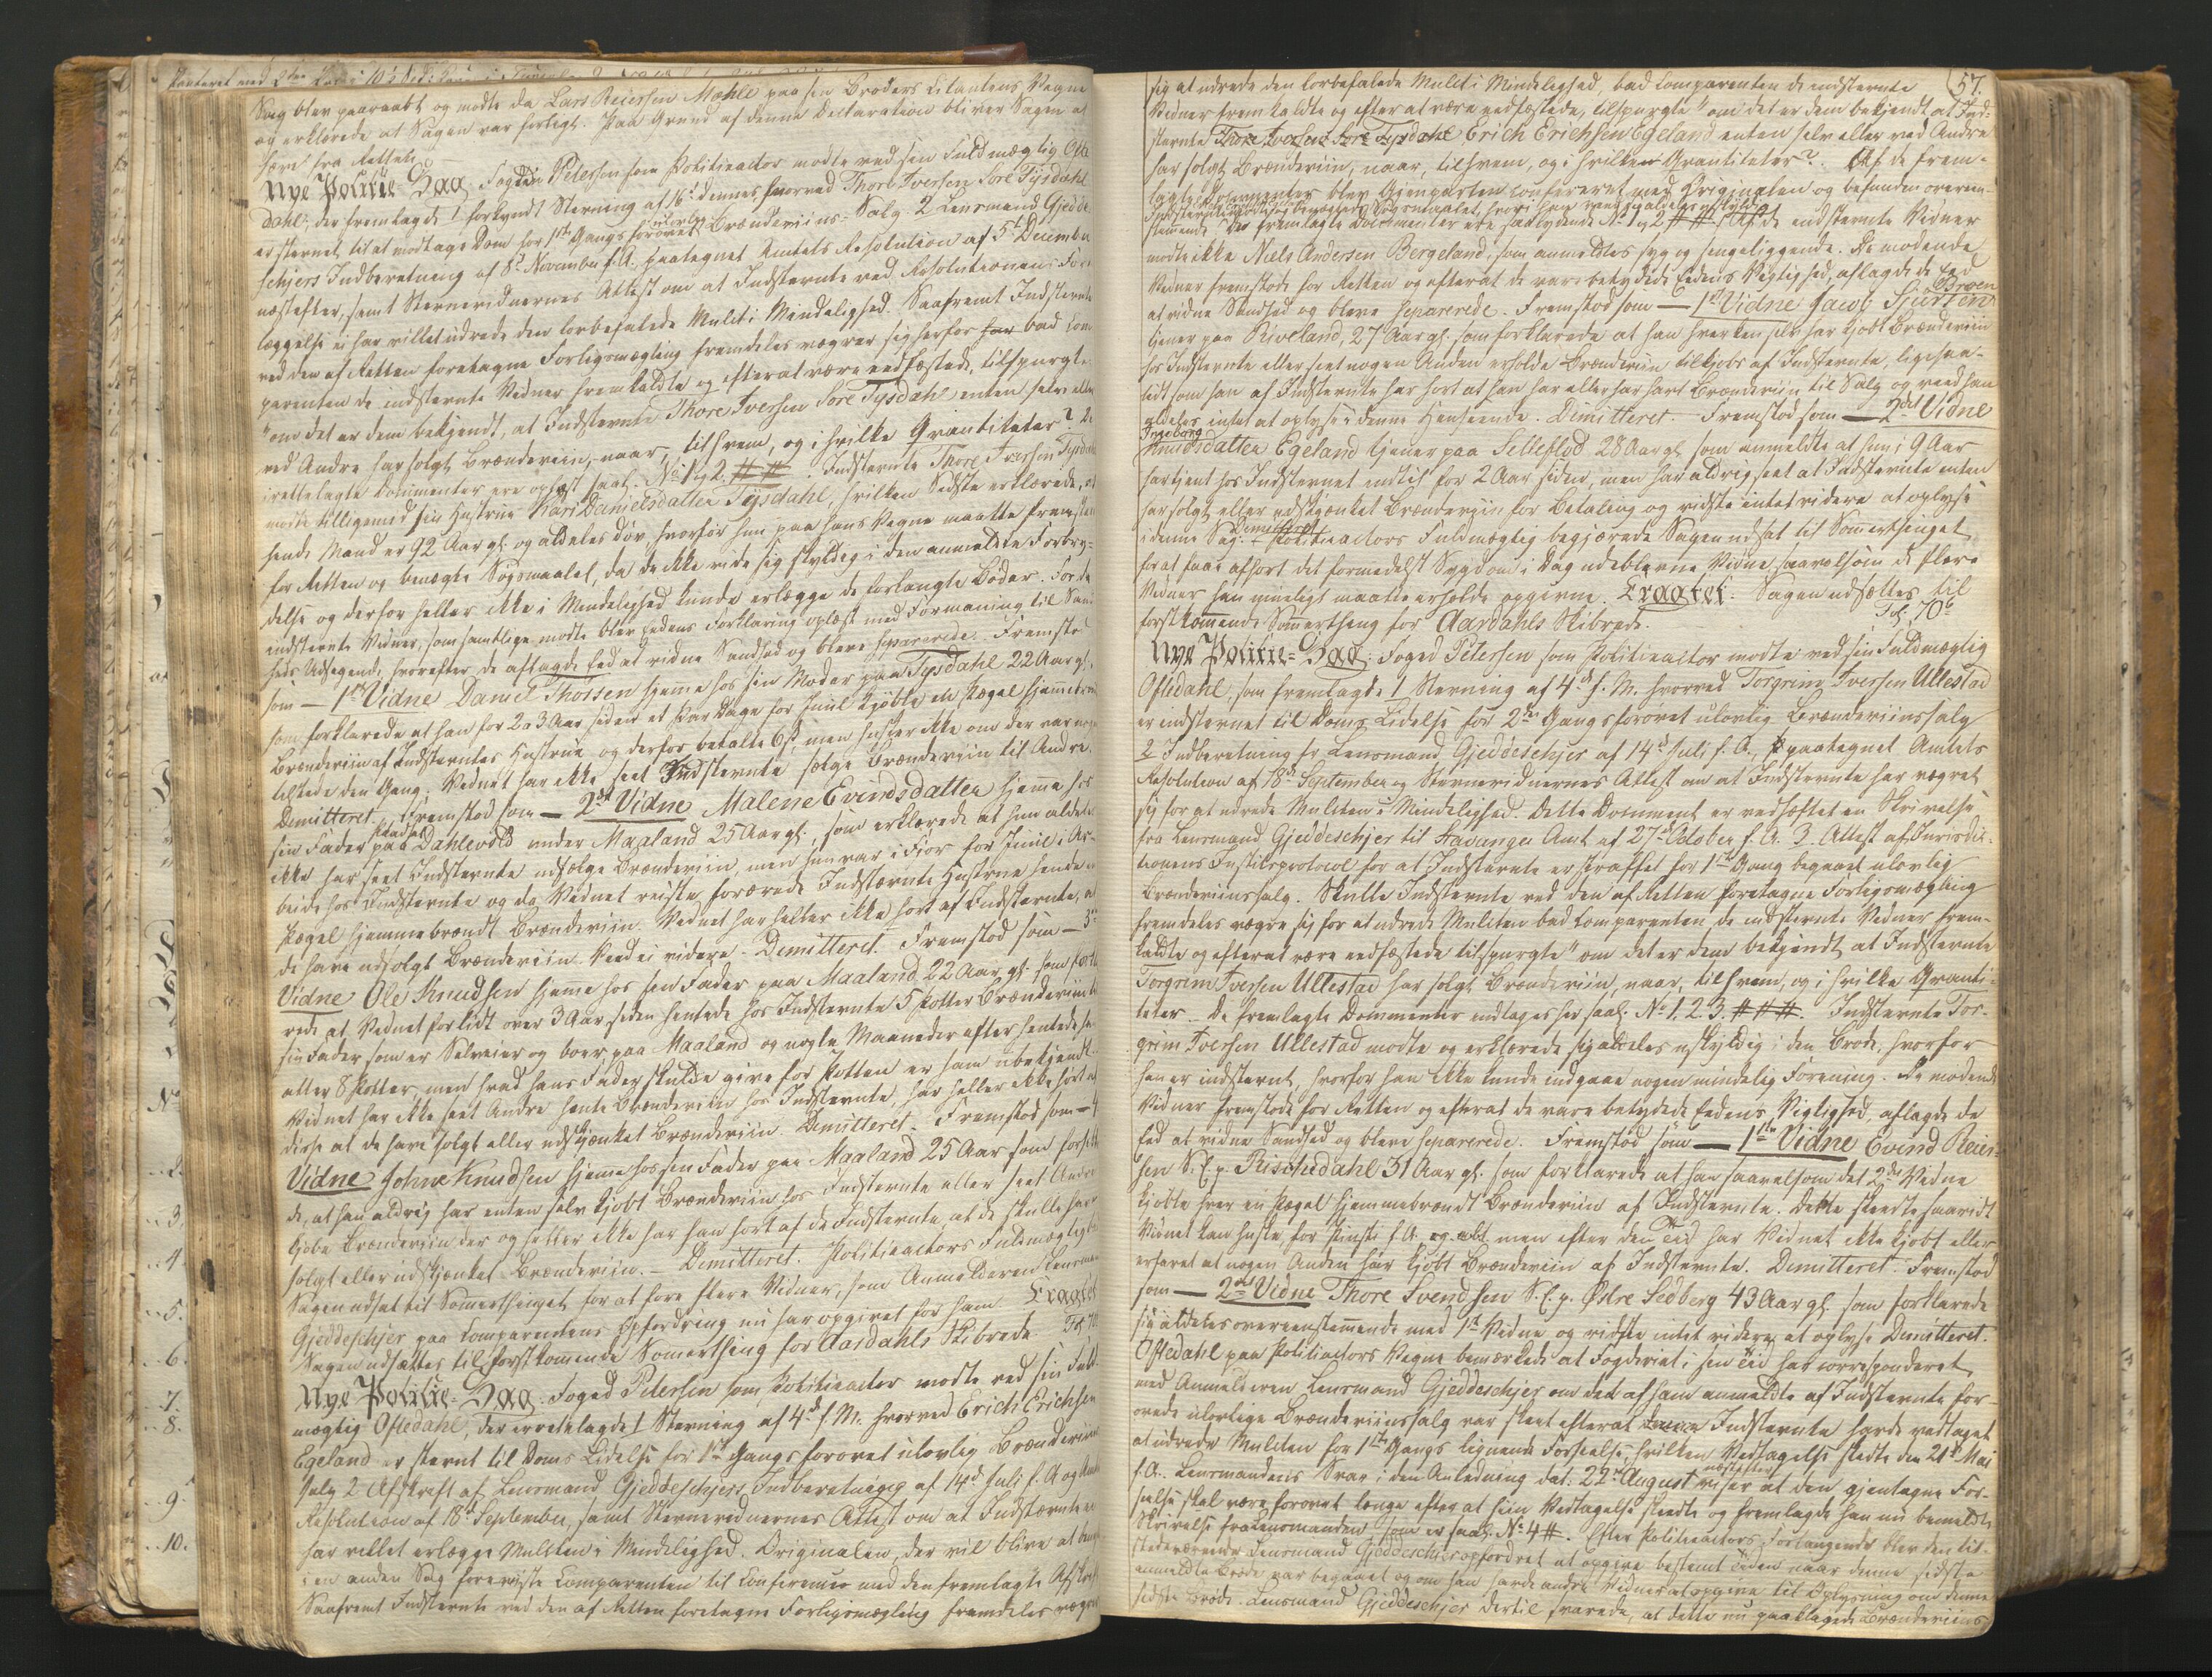 Sag blev paaraabt og mødte da Lars Reiersen Mæhle paa sin Broders Citantens Vegne
og erklærede at Sagen var forligt. Paa Grund af denne Declaration bliver Sagen at
hæve fra Retten.
Nye Politie-Sag. Fogden Petersen som Politieactor mødte ved sin Fuldmægtig Ofte
dahl, der fremlagde 1 forkyndt Stevning af 16d dennes hvorved Thore Iversen Fore Tysdahl
er stevnet til at modtage Dom for 1ste Gangs forøvet ulovlig Brændeviins-Salg 2 Lensmand Gjedde
schjers Indberetning af 8d November f. A. paategnet Amtets Resolution af 5t December
næstefter, samt Stevnevidnernes Attest om at Indstevnte ved Resolutionens Fore
læggelse ei har villet udrede den lovbefalede Mulct i Mindelighed. Saafremt Indstevnte
ved den af Retten foretagne Forligsmægling fremdeles vægrer sig herfor bad Com
parenten de indstevnte Vidner fremkaldte og efterat være eedfæstede, tilspurgte
"om det er dem bekjendt, at Indstevnte Thore Iversen Fore Tysdahl enten selv eller
ved Andre har solgt Brændeviin, naar, til hvem, og i hvilke Qvantiteter? De
irettelagte Documenter ere oplæst saal. No 1 og 2. # #. Indstevnte Thore Iversen Tysdahl
mødte tilligemed sin Hustrue Kari Danielsdatter Tysdahl, hvilken Sidste erklærede, at
hendes Mand er 92 Aar gl. og aldeles døv, hvorfor hun paa hans Vegne maatte fremstaae
for Retten og benægte Søgsmaalet, da de ikke vide sig skyldig i den anmeldte Forbry-
delse og derfor heller ikke i Mindelighed kunde erlægge de forlangte Bøder. For de
indstevnte Vidner, som samtlige mødte blev Eedens Forklaring oplæst med Formaning til Sand
heds Udsigende, hvorefter de aflagde Eed at vidne Sandhed og bleve separerede. Fremstod
som — 1ste Vidne Daniel Thorsen hjemme hos sin Moder paa Tysdahl 22 Aar gl.
som forklarede at han for 2 a 3 Aar siden et Par Dage for Juul kjøbte en Pægel hjemmebrændt
Brændeviin af Indstevntes Hustrue og derfor betalte 6 ß, men husker ikke om der var nogen
tilstede den Gang. Vidnet har ikke seet Indstevnte sælge Brændeviin til Andre.
Demitteret. Fremstod som — 2det Vidne Malene Evindsdatter hjemme hos
sin Fader paa Pladset Dahlevold under Maaland 25 Aar gl., som erklærede at hun aldeles
ikke har seet Indstevnte udsælge Brændeviin, men hun var i Fjor for Juul i Ar-
beide hos Indstevnte og da Vidnet reiste forærede Indstævnte Hustrue hende en
Pægel hjemmebrændt Brændeviin. Vidnet har heller ikke hørt af Indstevnte, at
de have udsolgt Brændeviin. Veed ei videre. Demitteret. Fremstod som — 3de
Vidne Ole Knudsen hjemme hos sin Fader paa Maaland 22 Aar gl. som forkla
rede at Vidnet for lidt over 3 Aar siden hentede hos Indstevnte 5 Potter Brændeviin til
sin Fader som er Selveier og boer paa Maaland og nogle Maaneder efter hentede han
atter 8 Potter, men hvad hans Fader skulde give for Potten er ham ubekjendt.
Vidnet har ikke seet Andre hente Brændeviin hos Indstevnte, har heller ikke hørt af
disse at de have solgt eller udskjænket Brændeviin. Demitteret. Fremstod som — 4
Vidne Johne Knudsen hjemme hos sin Fader paa Maaland 25 Aar som forkla
de, at han aldrig har enten selv kjøbt Brændeviin hos Indstevnte eller seet Andre
kjøbe Brændeviin der og heller ikke har han hørt af de Indstevnte, at de skulle have
solgt eller udskjænket Brændeviin. — Demitteret. Politieactors Fuldmægtig
Sagen udsat til Sommerthinget for at føre flere Vidner, som Anmelderen Lensmand
Gjeddeschjer paa Comparentens Opfordring nu har opgivet for ham. Eragtet
Sagen udsættes til førstkommende Sommerthing for Aardahls Skibrede. Fol. 70
Nye Politie-Sag. Foged Petersen som Politieactor mødte ved sin Fuld
mægtig Oftedahl, der irettelagde 1 Stevning af 4d f. M. hvorved Erich Erichsen
Egeland er stevnt til Doms Lidelse for 1ste Gangs forøvet ulovlig Brændeviins
salg 2 Afskrift af Lensmand Gjeddeschjers Indberetning af 14d Juli f. A og Amtets
Resolution af 18d September, samt Stevnevidnernes Attest om at Indstævnte ei
har villet erlægge Mulcten i Mindelighed. Originalen, der vil blive at bruge
i en anden Sag foreviiste Comparenten til Conference med den fremlagte Afskrift
Saafremt Indstevnte ved den af Retten foretagne Forligsmægling fremdeles vægrer
57.
sig at udrede den lovbefalede Mulct i Mindelighed, bad Comparenten de indstevnte
Vidner fremkaldte og efter at være eedfæstede, tilspurgte "om det er dem bekjendt at Ind-
stevnte Thore Iversen Fore Tysdahl Erich Erichsen Egeland enten selv eller ved Andre
har solgt Brændeviin, naar, til hvem, og i hvilken Qvantiteter?. Af de frem-
lagte Documenter blev Gjenparten confereret med Originalen og befunden overeen-
Indstevnte mødte og benægtede Søgsmaalet, hvori han var aldeles uskyldig
stemmende. De fremlagte Documenter ere saalydende No 1 og 2 # #. Af de indstevnte Vidner
mødte ikke Niels Andersen Bergeland, som anmeldtes syg og sengeliggende. De mødende
Vidner fremstode for Retten og efterat de vare betydede Eedens Vigtighed, aflagde de Eed
at vidne Sandhed og bleve separerede. Fremstod som — 1ste Vidne Jacob Sjursen
tjener paa Riveland, 27 Aar gl. som forklarede at han hverken selv har kjøbt Brændeviin
hos Indstevnte eller seet nogen Anden erholde Brændeviin tilkjøbs af Indstevnte, ligesaa-
lidt som han af Indstevnte har hørt at han har eller har havt Brændeviin til Salg og veed han
aldeles intet at oplyse i denne Henseende. Dimitteret. Fremstod som — 2det Vidne
Ingeborg
Knudsdatter Egeland tjener paa Selleflod 28 Aar gl. som anmeldte at hun i 9 Aar
har tjent hos Indstevnet indtil for 2 Aar siden, men har aldrig seet at Indstevnte enten
har solgt eller udskjænket Brændeviin for Betaling og vidste intet videre at oplyse
i denne Sag. Demitteret Politieactors Fuldmægtig begjærede Sagen udsat til Sommerthinget
for at faae afhørt det formedelst Sygdom i Dag udeblevne Vidne, saavelsom de flere
Vidner han mueligt maatte erholde opgivne. Eragtet: Sagen udsættes til
førstkommende Sommerthing for Aardahls Skibrede. Fol. 70b
Nye Politie-Sag: Foged Petersen som Politieactor mødte ved sin Fuldmægtig
Oftedahl, som fremlagde 1 Stevning af 4de f. M. hvorved Torgrim Iversen Ullestad
er indstevnet til Doms Lidelse for 2den Gangs forøvet ulovlig Brændeviinssalg
2 Indberetning fr Lensmand Gjeddeschjer af 14d Juli f. A., paategnet Amtets
Resolution af 18de September og Stevnevidnernes Attest om at Indstevnte har vægret
sig for at udrede Mulcten i Mindelighed. Dette Document er vedhæftet en Skrivelse
fra Lensmand Gjeddeschjer til Stavanger Amt af 27d October f. A. 3. Attest af Jurisdic-
tionens Justitsprotocol for at Indstevnte er straffet for 1ste Gang begaaet ulovlig
Brændeviinssalg. Skulle Indstevnte ved den af Retten foretagne Forligsmægling
fremdeles vægre sig for at udrede Mulcten bad Comparenten de indstevnte Vidner frem-
kaldte og efterat være eedfæstede tilspurgte "om det er dem bekjendt at Indstevnte
Torgrim Iversen Ullestad har solgt Brændeviin, naar, til hvem, og i hvilke Qvanti-
teter. De fremlagte Documenter indtages her saal. No 1. 2. 3. # # #. Indstevnte Tor-
grim Iversen Ullestad mødte og erklærede sig aldeles uskyldig i den Brøde, hvorfor
han er indstevnt, hvorfor han ikke kunde indgaae nogen mindelig Forening. De mødende
Vidner fremstode for Retten og efterat de vare betydede Eedens Vigtighed, aflagde de
Eed at vidne Sandhed og bleve separerede. Fremstod som — 1ste Vidne Evind Reier-
sen S. E. p. Rischedahl 31 Aar gl. som forklarede at han saavelsom det 2det Vidne
kjøbte hver en Pægel hjemmebrændt Brændeviin af Indstevnte. Dette skeedte saavidt
Vidnet kan huske for Pintsi f. A. men efter den Tid har Vidnet ikke kjøbt eller
erfaret at nogen Anden har kjøbt Brændeviin af Indstevnte. Dimitteret. Fremstod
som — 2det Vidne Thore Svendsen S. E. p. Østre Sedberg 43 Aar gl. som forklarede
sig aldeles overeenstemmende med 1ste Vidne og vidste intet videre at oplyse Dimitteret.
Oftedahl paa Politiactors Vegne bemærkede at Fogderiet i sin Tid har corresponderet
med Anmelderen Lensmand Gjeddeschjer om det af ham anmeldte af Indstevnte for-
øvede ulovlige Brændeviinssalg var skeet efterat Indstevnte havde vedtaget
at udrede Mulcten for 1ste Gangs lignende Forseelse, hvilken Vedtagelse skedte den 21de Mai
f. A.. Lensmandens Svar i den Anledning dat. 22de August næstefter viser at den gjentagne For-
seelse skal være forøvet længe efter at hiin Vedtagelse skeedte og fremlagde han nu bemeldte
Skrivelse fra Lensmanden, som er saal. No 4 #. Efter Politieactors Forlangende blev den til-
stedeværende Lensmand Gjeddeschjer opfordret at opgive bestemt Tiden naar denne sidste
anmeldte Brøde var begaaet og om han havde andre Vidner at opgive til Oplysning om denne
sidste Brøde. Lensmand Gjeddeschjer dertil svarede, at dette nu paaklagede Brændeviins